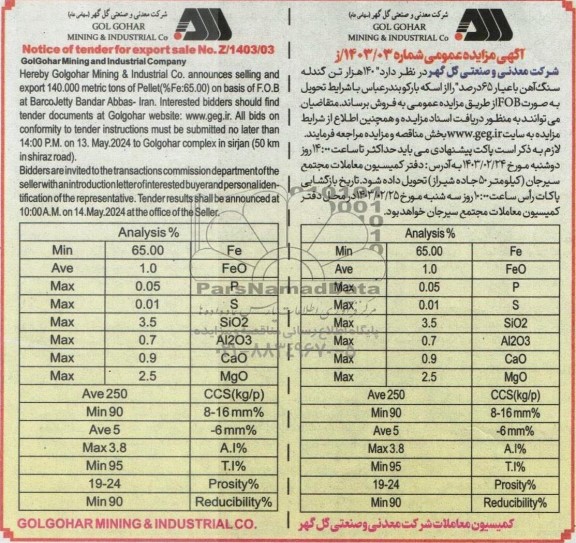 شرکت معدنی و صنعتی گل گهر (سهامی عام)
GOL GOHAR
MINING & INDUSTRIAL Co
Notice of tender for export sale No.Z/1403/03
GolGohar Mining and Industrial Company
Hereby Golgohar Mining & Industrial Co. announces selling and
export 140.000 metric tons of Pellet(%Fe:65.00) on basis of F.O.B
at BarcoJetty Bandar Abbas- Iran. Interested bidders should find
tender documents at Golgohar website: www.geg.ir. All bids on
conformity to tender instructions must be submitted no later than
14:00 P.M. on 13. May.2024 to Golgohar complex in sirjan (50 km
in shiraz road).
Bidders are invited to the transactions commission department of the
seller with an introduction letter of interested buyer and personal iden-
tification of the representative. Tender results shall be announced at
10:00A.M. on 14.May.2024 at the office of the Seller.
Analysis %
Min 65.00 Fe
Ave 1.0 FeO
Max 0.05 P
Max 0.01 S
Max 3.5 SiO2
Max 0.7 Al2O3
Max 0.9 CaO
Max 2.5 MgO
Ave 250 CCS(kg/p)
Min 90 8-16 mm%
Ave 5 -6 mm%
Max 3.8 A.I%
Min 95 T.I%
19-24 Prosity%
Min 90 Reducibility%
GOLGOHAR MINING & INDUSTRIAL CO.
شرکت معدنی و صنعتی گل گهر (سهامی عام)
GOL GOHAR
MINING & INDUSTRIAL Co
آگهی مزایده عمومی شماره ۱۴۰۳/۰۳/ز
شرکت معدنی و صنعتی گل گهر در نظر دارد "۱۴۰ هزار تن گندله
سنگ آهن با عیار ۶۵ درصد" را از اسکه بارکو بندرعباس با شرایط تحویل
به صورت FOB از طریق مزایده عمومی به فروش برساند. متقاضیان
می توانند به منظور دریافت اسناد مزایده و همچنین اطلاع از شرایط
مزایده به سایت www.geg.ir بخش مناقصه و مزایده مراجعه فرمایند.
لازم به ذکر است پاکت پیشنهادی می باید حداکثر تا ساعت ۱۴:۰۰ روز
دوشنبه مورخ ۱۴۰۳/۰۲/۲۴ به آدرس: دفتر کمیسیون معاملات مجتمع
سیرجان (کیلومتر ۵۰ جاده شیراز) تحویل داده شود. تاریخ بازگشایی
پاکات رأس ساعت ۱۰:۰۰ روز سه شنبه مورخ ۱۴۰۳/۰۲/۲۵ در محل دفتر
کمیسیون معاملات مجتمع سیرجان خواهد بود.
Analysis %
Min 65.00 Fe
Ave 1.0 FeO
Max 0.05 P
Max 0.01 S
Max 3.5 SiO2
Max 0.7 Al2O3
Max 0.9 CaO
Max 2.5 MgO
Ave 250 CCS(kg/p)
Min 90 8-16 mm%
Ave 5 -6 mm%
Max 3.8 A.I%
Min 95 T.I%
19-24 Prosity%
Min 90 Reducibility%
کمیسیون معاملات شرکت معدنی و صنعتی گل گهر
ParsNamadData